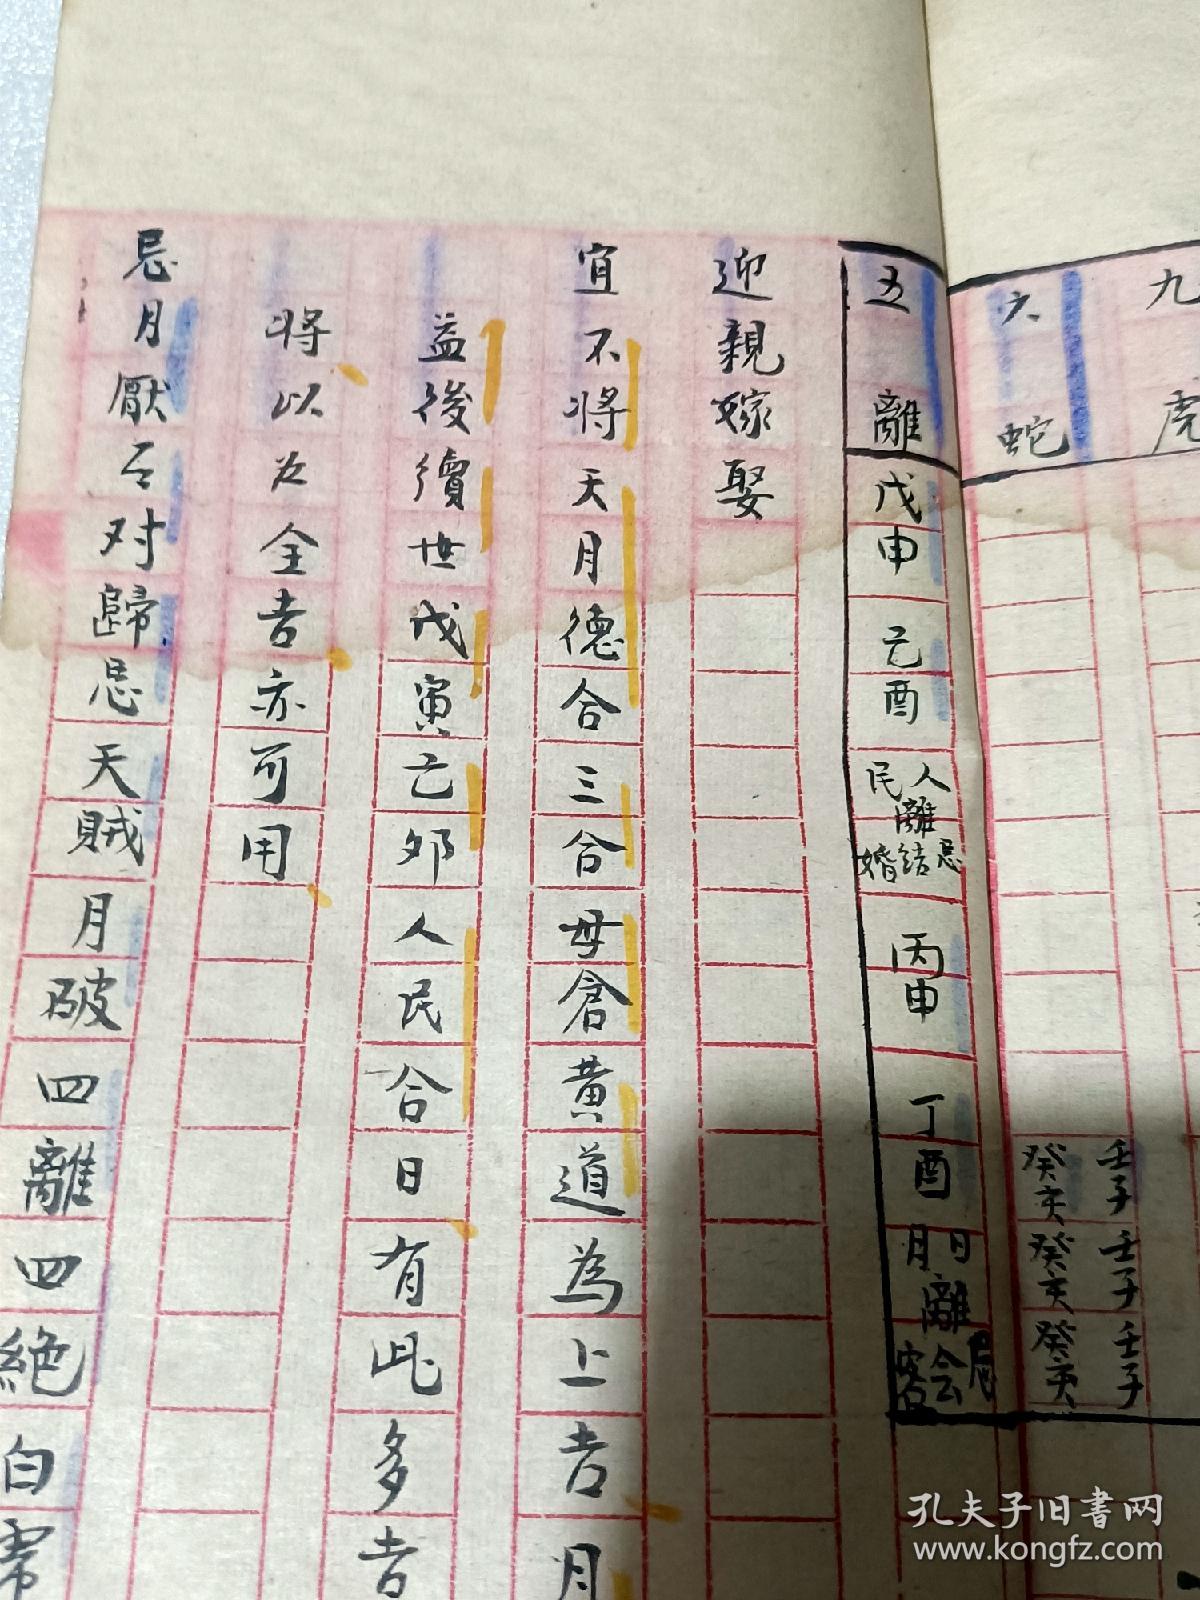 九
虎
壬子 壬子 壬子
六
蛇
癸亥 癸亥 癸亥
五
離
戊申 己酉
人民離
忌结婚
丙申 丁酉
日月離
忌会客
迎親嫁娶
宜不将天月德合三合母倉黄道為上吉月
益後續世戊寅己夘人民合日有此多吉
将以為全吉亦可用
忌月厭对歸忌天賊月破四離四絶白虎
孔夫子旧書网
www.kongfz.com